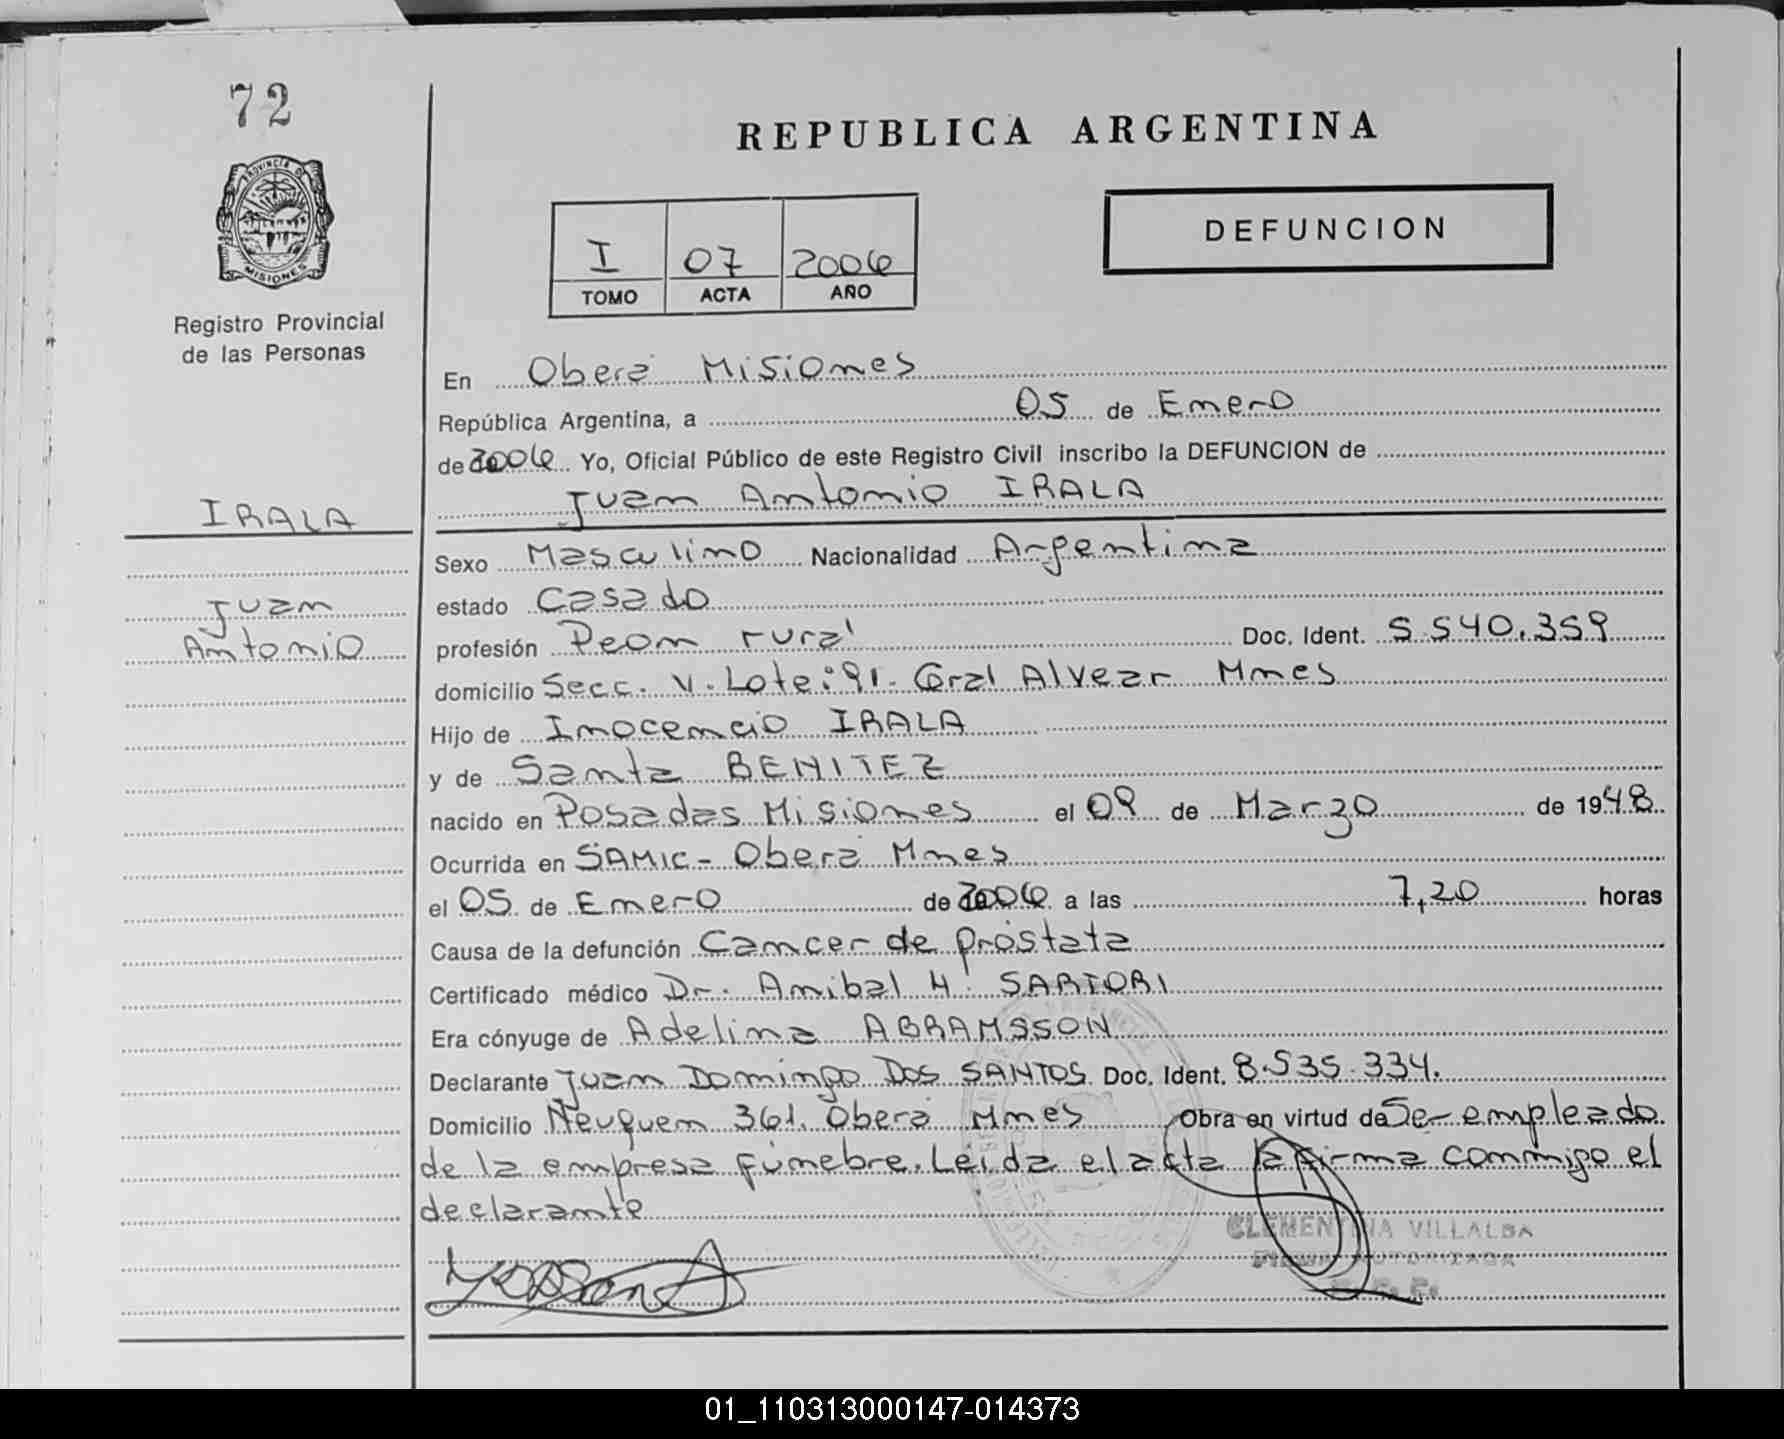 72
PROVINCIA DE
MISIONES
Registro Provincial
de las Personas
IRALA
Juan
Antonio
REPUBLICA ARGENTINA
I 07 2006
TOMO ACTA AÑO
DEFUNCION
En Oberá Misiones
República Argentina, a 05 de Enero
de 2006 Yo, Oficial Público de este Registro Civil inscribo la DEFUNCION de
Juan Antonio IRALA
Sexo Masculino Nacionalidad Argentina
estado Casado
profesión Peon rural Doc. Ident. 5.540.359
domicilio Secc. V. Lote: 91. Gral Alvear Mnes
Hijo de Inocencio IRALA
y de Santa BENITEZ
nacido en Posadas Misiones el 09 de Marzo de 1948
Ocurrida en SAMIC - Oberá Mnes
el 05 de Enero de 2006 a las 7,20 horas
Causa de la defunción Cancer de próstata
Certificado médico Dr. Anibal H. SARTORI
Era cónyuge de Adelina ABRAMSSON
Declarante Juan Domingo Dos SANTOS Doc. Ident. 8.535.334.
Domicilio Neuquen 361. Oberá Mnes Obra en virtud de Ser empleado
de la empresa fúnebre. Leida el acta la firma conmigo el
declarante
CLEMENTINA VILLALBA
FIRMA AUTORIZADA
01_110313000147-014373